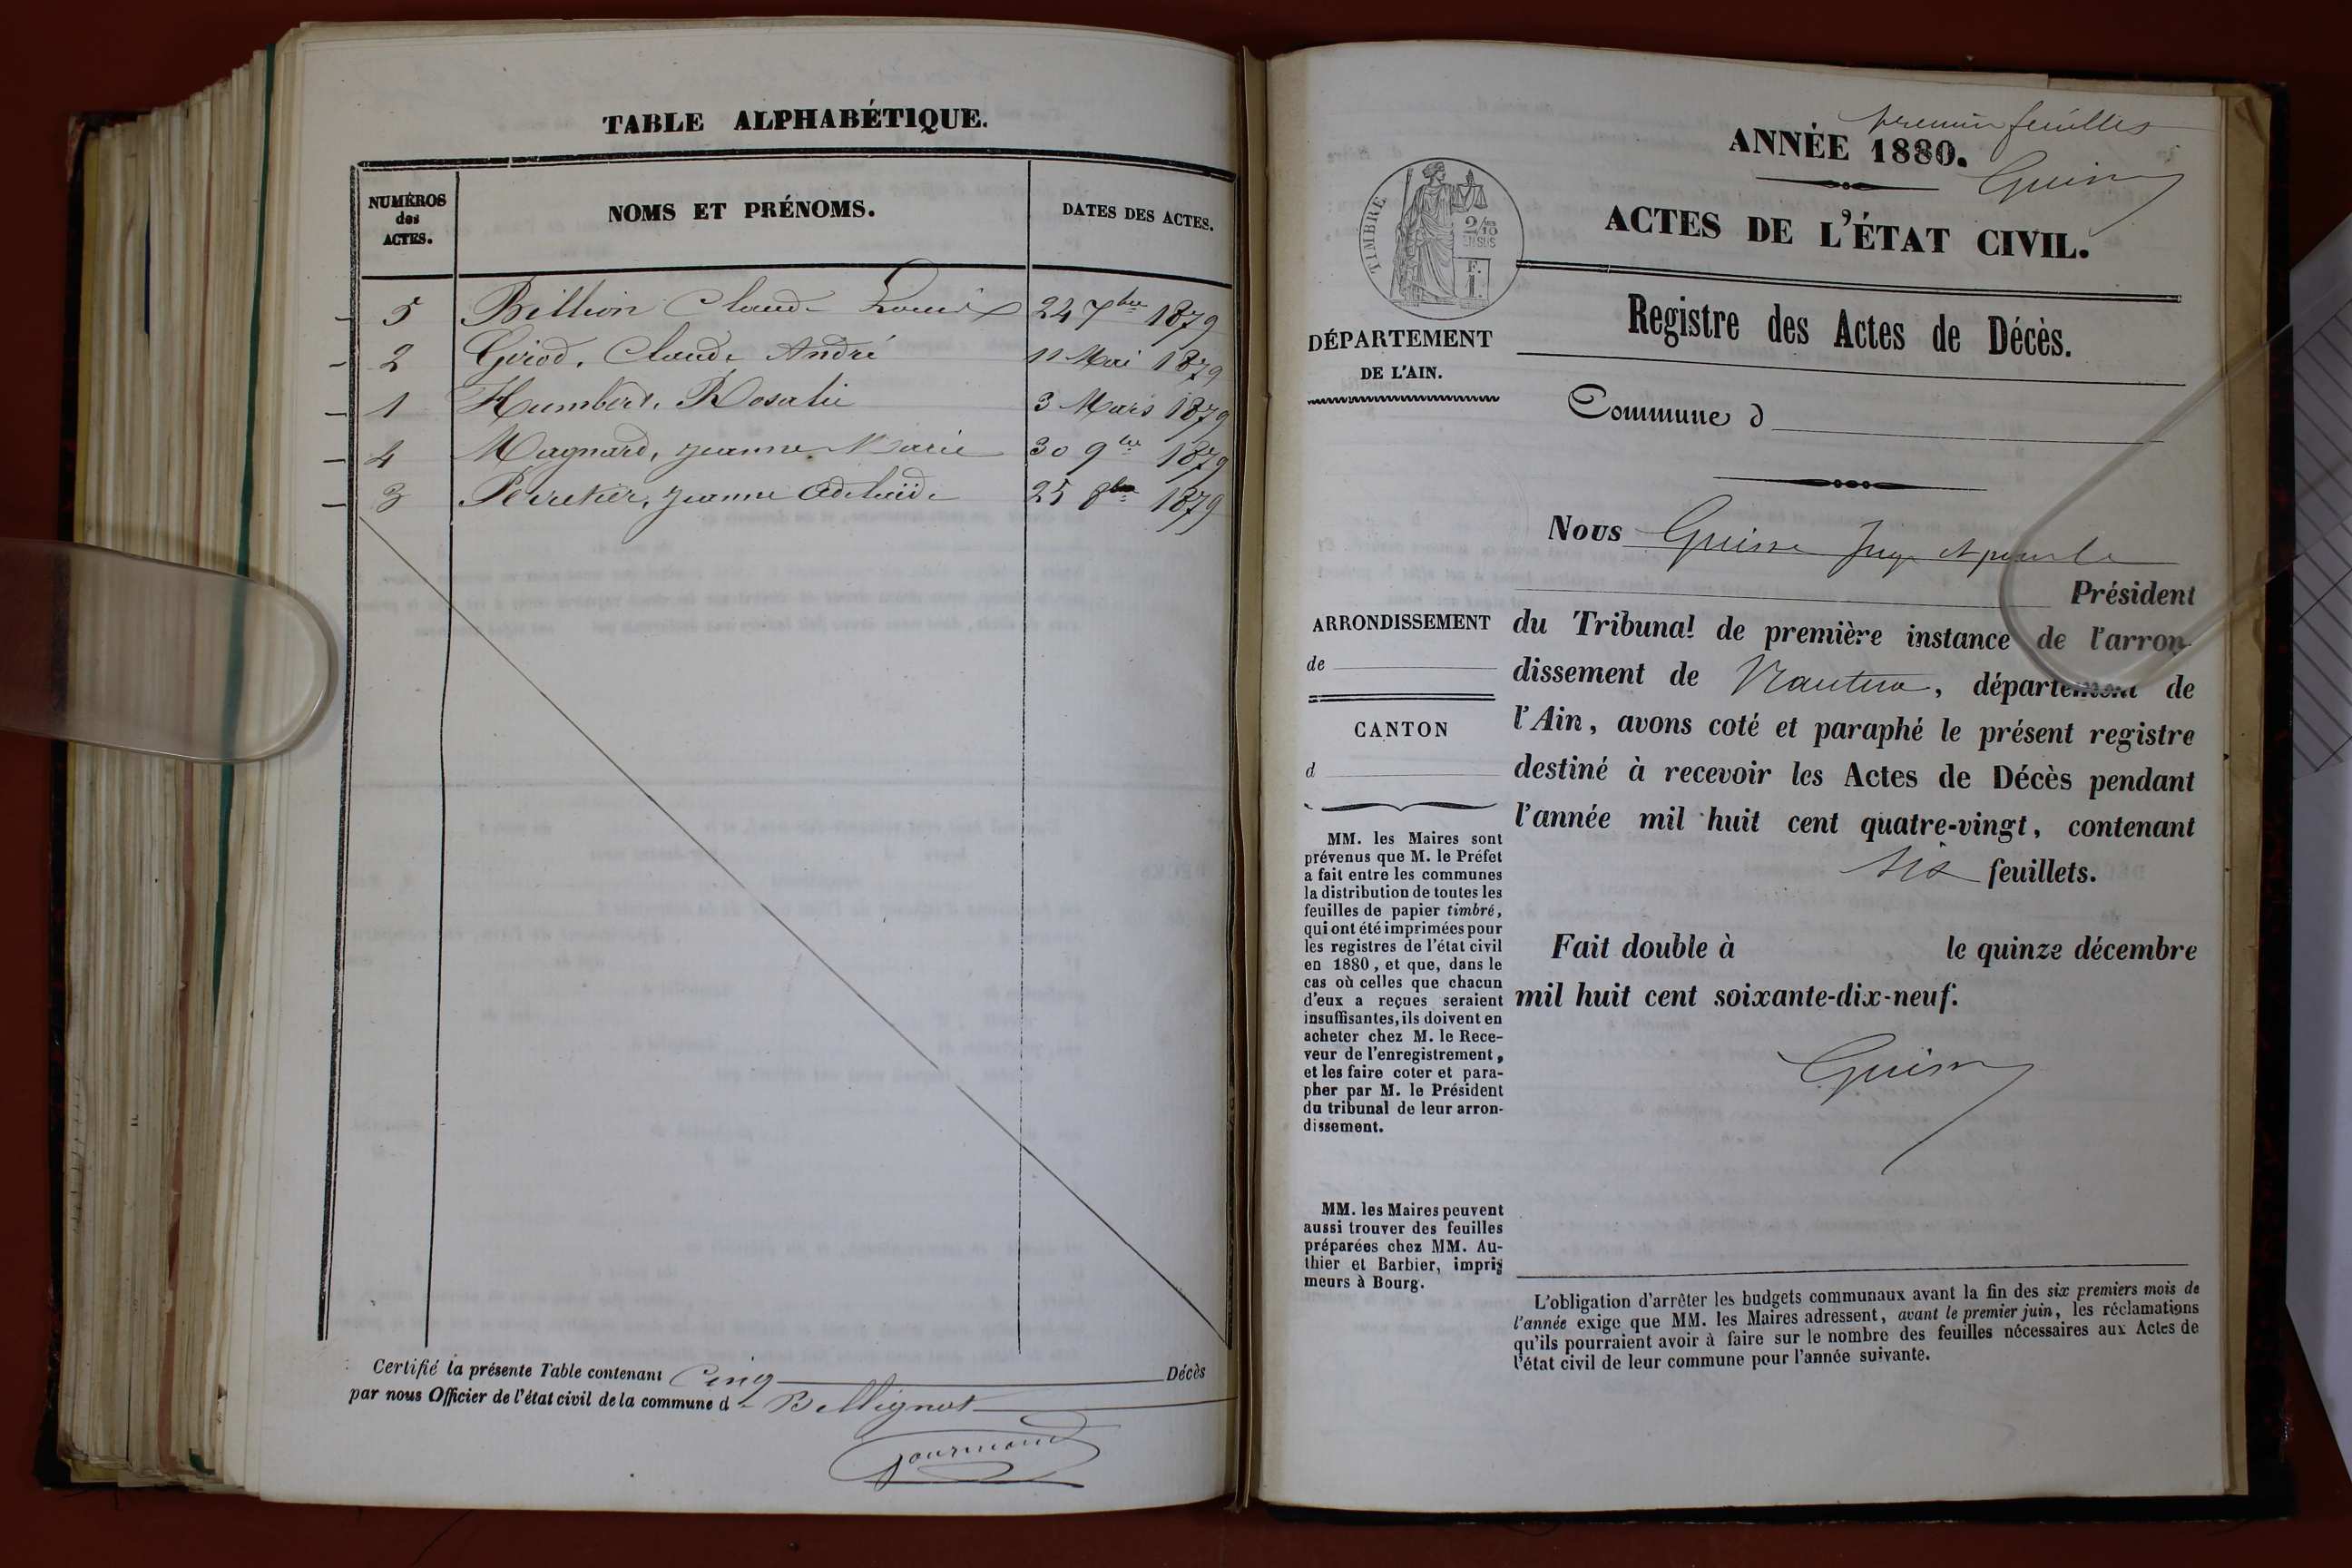 TABLE ALPHABÉTIQUE.
NUMÉROS des ACTES.
NOMS ET PRÉNOMS.
DATES DES ACTES.
5 Billion Claude Louis 24 7bre 1879
2 Girod, Claude André 11 Mai 1879
1 Humbert, Rosalie 3 Mars 1879
4 Magnard, jeanne Marie 30 9bre 1879
3 Perretier, jeanne Adelaïde 25 8bre 1879
Certifié la présente Table contenant Cinq Décès
par nous Officier de l'état civil de la commune de Bellignat
Gourmand
premier feuillet
ANNÉE 1880.
Guison
ACTES DE L'ÉTAT CIVIL.
TIMBRE
2/10
EN SUS
F.
1.
Registre des Actes de Décès.
DÉPARTEMENT
DE L'AIN.
Commune d
Nous Juge et pour le
Président
ARRONDISSEMENT
de
CANTON
d
du Tribunal de première instance de l'arron-
dissement de Nantua, département de
l'Ain, avons coté et paraphé le présent registre
destiné à recevoir les Actes de Décès pendant
l'année mil huit cent quatre-vingt, contenant
six feuillets.
Fait double à le quinze décembre
mil huit cent soixante-dix-neuf.
MM. les Maires sont
prévenus que M. le Préfet
a fait entre les communes
la distribution de toutes les
feuilles de papier timbré,
qui ont été imprimées pour
les registres de l'état civil
en 1880, et que, dans le
cas où celles que chacun
d'eux a reçues seraient
insuffisantes, ils doivent en
acheter chez M. le Rece-
veur de l'enregistrement,
et les faire coter et para-
pher par M. le Président
du tribunal de leur arron-
dissement.
MM. les Maires peuvent
aussi trouver des feuilles
préparées chez MM. Au-
thier et Barbier, impri-
meurs à Bourg.
L'obligation d'arrêter les budgets communaux avant la fin des six premiers mois de
l'année exige que MM. les Maires adressent, avant le premier juin, les réclamations
qu'ils pourraient avoir à faire sur le nombre des feuilles nécessaires aux Actes de
l'état civil de leur commune pour l'année suivante.